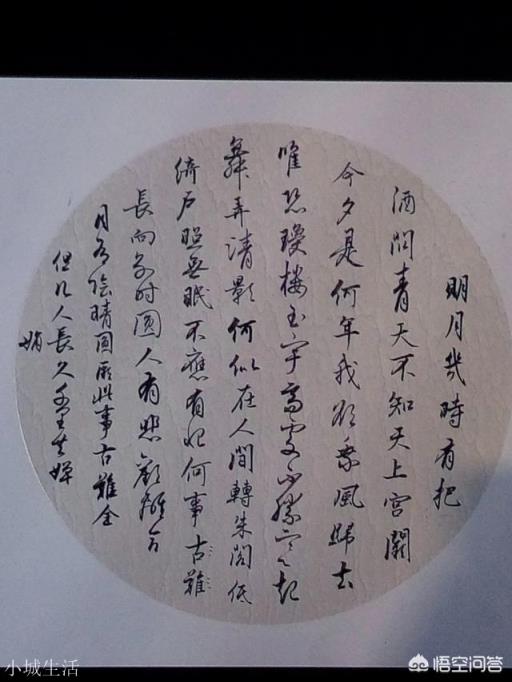 明月幾時有把
酒問青天不知天上宮闕
今夕是何年我欲乘風歸去
唯恐瓊樓玉宇高處不勝寒起
舞弄清影何似在人間轉朱閣低
綺戶照無眠不應有恨何事古難
長向別時圓人有悲歡離合
月有陰晴圓缺此事古難全
但願人長久千里共嬋
娟
小城生活
悟空问答